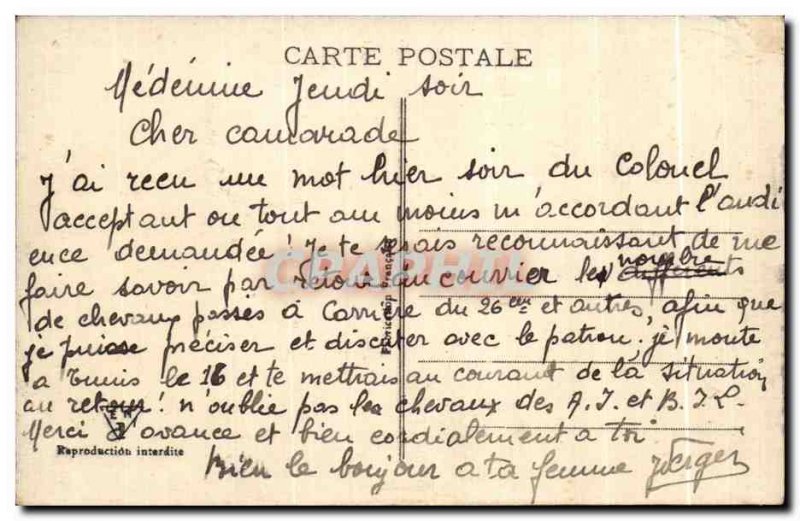 CARTE POSTALE
Médenine Jeudi soir
Cher camarade
J'ai reçu un mot hier soir du Colonel
acceptant ou tout au moins m'accordant l'audi
ence demandée! Je te serais reconnaissant de me
faire savoir par retour du courrier le nombre
de chevaux passés à Carrière du 26ème et autres, afin que
je puisse préciser et discuter avec le patron. je monte
a Tunis le 16 et te mettrais au courant de la situation
au retour! n'oublie pas les chevaux des A.I. et B.I.L.
Merci d'avance et bien cordialement a toi
Reproduction interdite
Bien le bonjour a ta femme